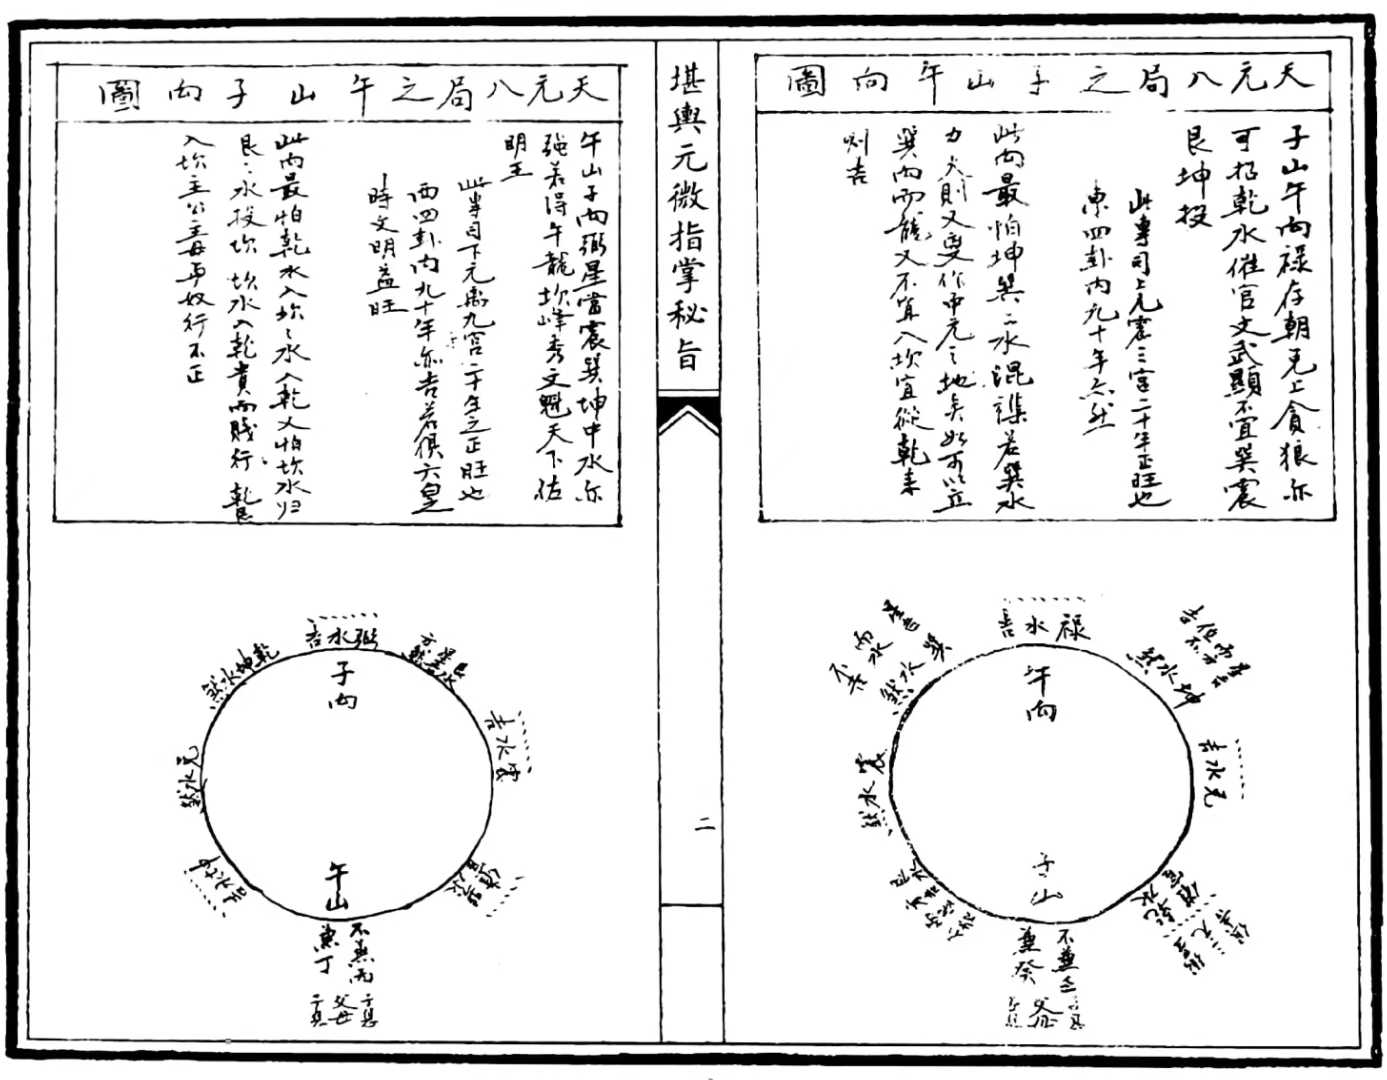 天元八局之子山午向圖
子山午向祿存朝兌上貪狼亦
可招乾水催官文武顯不宜巽震
艮坤投
此專司上元震三宮二十年正旺也
東四卦內九十年亦然
此向最怕坤巽二水混雜若巽水
力大則又變作中元之地矣如可以立
巽向而龍又不宜入坎宜從乾來
則吉
祿水吉
午向
坤水煞
兌水吉
乾
催官水
子山
不兼壬
兼癸
父母
子息
震水煞
巽水煞
堪輿元微指掌秘旨
二
天元八局之午山子向圖
午山子向弼星當震巽坤中水亦
強若得午龍坎峰秀文魁天下佐
明王
此專司下元離九宮二十年之正旺也
西四卦內九十年亦吉若俱六皇
時文明益旺
此向最怕乾水入坎坎水入乾又怕坎水归
艮艮水投坎坎水入乾貴而賤行乾艮
入坎主公主母再奴行不正
弼水吉
子向
震水吉
午山
不兼丙
兼丁
父母
子息
坤水吉
兌水煞
乾坤水煞